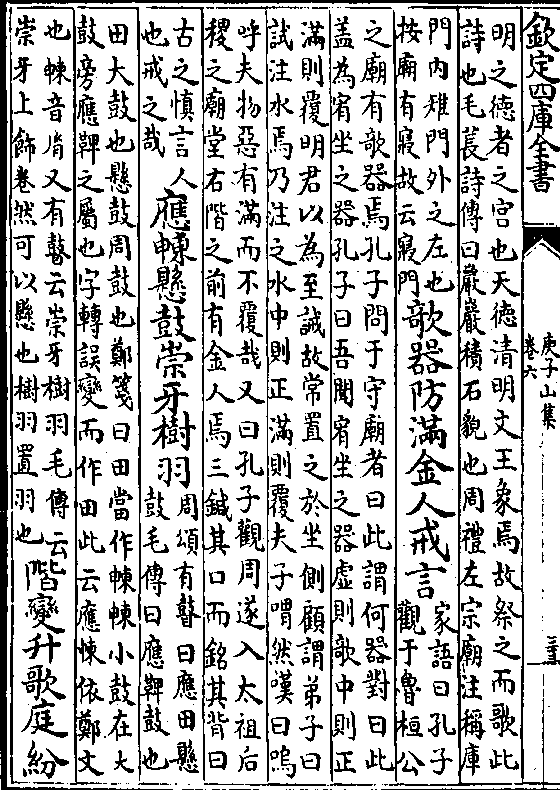 欽定四庫全書
庚子山集
卷六
明之德者之宫也天德清明文王象焉故祭之而歌此
詩也毛萇詩傳曰巖巖積石貌也周禮左宗廟注稱庫
門内雉門外之左也
按廟有寢故云寢門
欹器防滿金人戒言
家語曰孔子
觀于魯桓公
之廟有欹器焉孔子問于守廟者曰此謂何器對曰此
盖為宥坐之器孔子曰吾聞宥坐之器虛則欹中則正
滿則覆明君以為至誠故常置之於坐側顧謂弟子曰
試注水焉乃注之水中則正滿則覆夫子喟然嘆曰嗚
呼夫物惡有滿而不覆哉又曰孔子觀周遂入太祖后
稷之廟堂右階之前有金人焉三緘其口而銘其背曰
古之慎言人
也戒之哉
應朄懸鼓崇牙樹羽
周頌有瞽曰應田懸
鼓毛傳曰應鞞鼓也
田大鼓也懸鼓周鼓也鄭箋曰田當作朄朄小鼓在大
鼓旁應鞞之屬也字轉誤變而作田此云應朄依鄭文
也朄音胤又有瞽云崇牙樹羽毛傳云
崇牙上飾卷然可以懸也樹羽置羽也
階變升歌庭紛